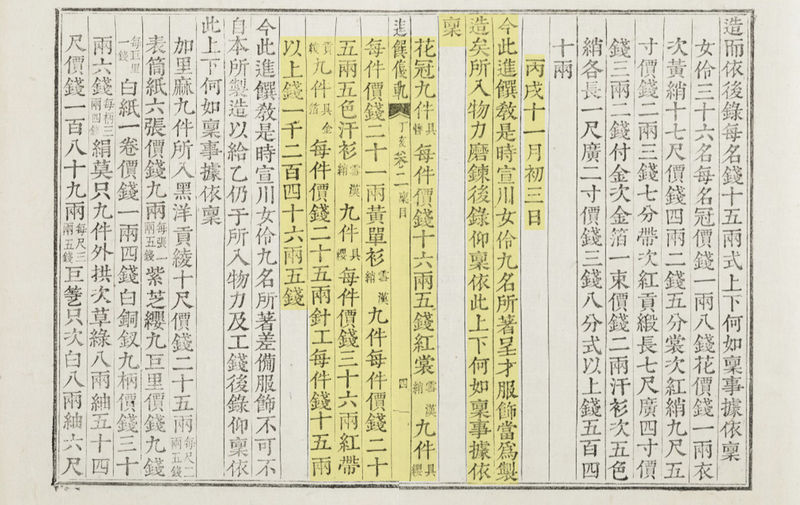 造而依後錄每名錢十五兩式上下何如稟事據依稟
女伶三十六名每名冠價錢一兩八錢花價錢一兩衣
次黃綃十七尺價錢四兩二錢五分裳次紅綃九尺五
寸價錢二兩三錢七分帶次紅貢緞長七尺廣四寸價
錢三兩二錢付金次金箔一束價錢二兩汗衫次五色
綃各長一尺廣二寸價錢三錢八分式以上錢五百四
十兩
丙戌十一月初三日
今此進饌敎是時宣川女伶九名所著呈才服飾當爲製
造矣所入物力磨鍊後錄仰稟依此上下何如稟事據依
稟
花冠九件具每件價錢十六兩五錢紅裳雲漢綃九件具纓
進饌儀軌 丁亥 卷二 稟目 四
每件價錢二十一兩黃單衫雲漢綃九件每件價錢二十
五兩五色汗衫雲漢綃九件具纓每件價錢三十六兩紅帶
貢綾九件具金箔每件價錢二十五兩針工每件錢十五兩
以上錢一千二百四十六兩五錢
今此進饌敎是時宣川女伶九名所著差備服飾不可不
自本所製造以給乙仍于所入物力及工錢後錄仰稟依
此上下何如稟事據依稟
加里麻九件所入黑洋貢綾十尺價錢二十五兩每尺二兩五錢
表筒紙六張價錢九兩每張一兩五錢紫芝纓九巨里價錢九錢
每巨里一錢白紙一卷價錢一兩四錢白銅釵九柄價錢三十
兩六錢每柄三兩四錢絹莫只九件外拱次草綠八兩紬五十四
尺價錢一百八十九兩每尺三兩五錢巨등只次白八兩紬六尺